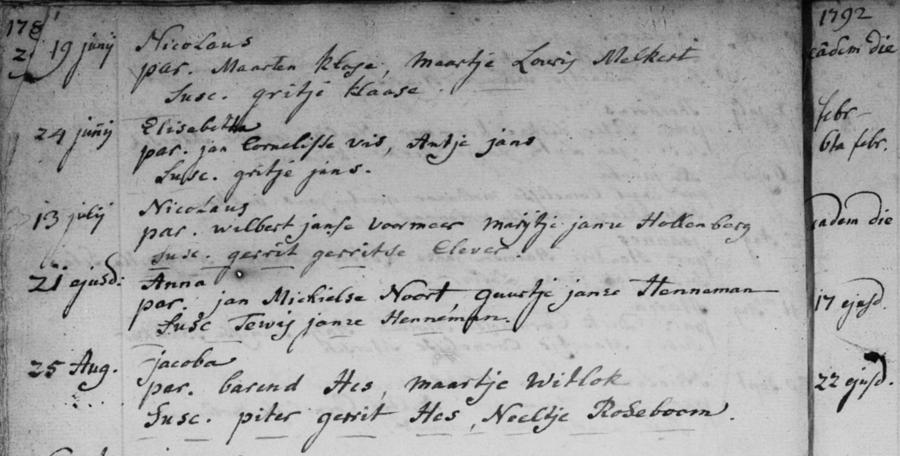 178
2 19 junij Nicolaus
par. Maarten klase, maartje Lowis Melkert
Susc. gritje klaase.
24 junij Elisabetha
par. jan Cornelisse vis, Antje jans
Susc. gritje jans.
13 julij Nicolaus
par. wilbert janse voormeer marijtje janze Hollenberg
Susc. gerrit gerritse Clever
21 ejusd: Anna
par. jan Michielse Noort, guurtje janze Henneman
Susc Tewis janze Henneman.
25 Aug. jacoba
par. barend Hes, maartje Witlok
Susc. piter gerrit Hes, Neeltje Roseboom.
1792
eadem die
febr
6ta febr.
eadem die
17 ejusd.
22 ejusd.